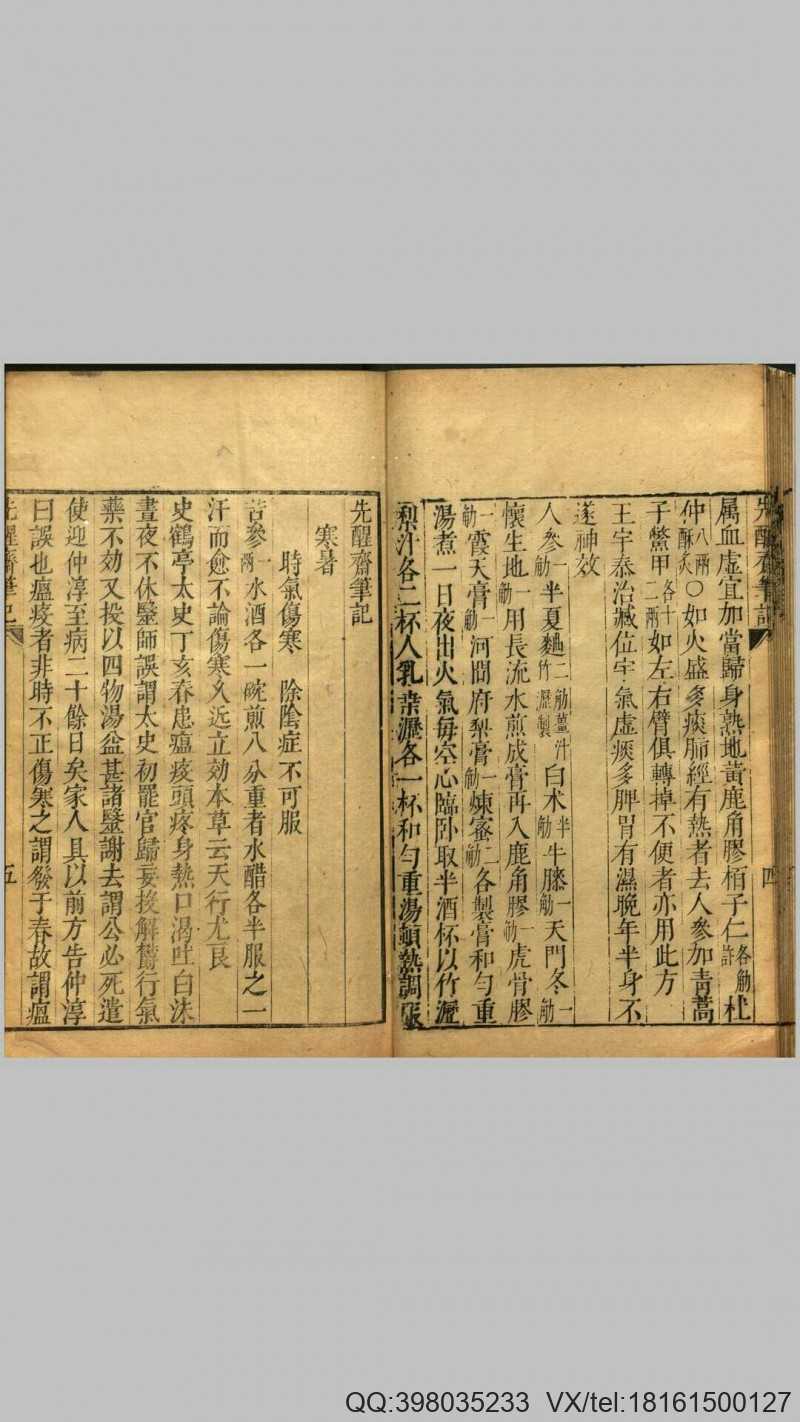 先醒齋筆記
四
属血虛宜加當歸身熟地黄鹿角膠栢子仁各觔許杜
仲八兩酥炙○如火盛多痰肺經有熱者去人參加青蒿
子鱉甲各十二兩如左右臂俱轉掉不便者亦用此方
王宇泰治臧位宇氣虛痰多脾胃有濕晚年半身不
遂神效
人參一觔半夏麯二觔薑汁竹瀝製白术半觔牛膝一觔天門冬一觔
懷生地一觔用長流水煎成膏再入鹿角膠一觔虎骨膠
一觔霞天膏一觔河間府梨膏一觔煉蜜二觔各製膏和勻重
湯煮一日夜出火氣每空心臨卧取半酒杯以竹瀝
梨汁各二杯人乳桒瀝各一杯和勻重湯頓熱調服
先醒齋筆記
寒暑
時氣傷寒 除陰症不可服
苦參一兩水酒各一碗煎八分重者水醋各半服之一
汗而愈不論傷寒久近立効本草云天行尤良
史鶴亭太史丁亥春患瘟疫頭疼身熱口渴吐白沫
晝夜不休醫師誤謂太史初罷官歸妄投解鬱行氣
藥不効又投以四物湯益甚諸醫謝去謂公必死遣
使迎仲淳至病二十餘日矣家人具以前方告仲淳
曰誤也瘟疫者非時不正傷寒之謂發于春故謂瘟
先醒齋筆記
五
QQ:398035233 VX/tel:18161500127